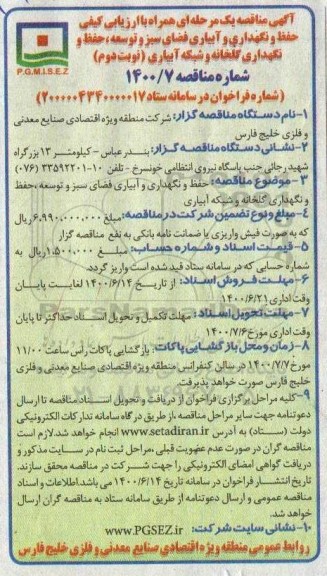 آگهی مناقصه یک مرحله ای همراه با ارزیابی کیفی
حفظ و نگهداری و آبیاری فضای سبز و توسعه، حفظ و
نگهداری گلخانه و شبکه آبیاری (نوبت دوم)
P.G.M.I.S.E.Z
شماره مناقصه ۱۴۰۰/۷
(شماره فراخوان در سامانه ستاد ۲۰۰۰۰۰۴۳۴۰۰۰۰۰۱۷)
۱-نام دستگاه مناقصه گزار: شرکت منطقه ویژه اقتصادی صنایع معدنی
و فلزی خلیج فارس
۲-نشانی دستگاه مناقصه گزار: بندرعباس - کیلومتر ۱۳ بزرگراه
شهید رجائی جنب پاسگاه نیروی انتظامی خونسرخ - تلفن ۱۰-۳۳۵۹۲۲۰۱ (۰۷۶)
۳-موضوع مناقصه: حفظ و نگهداری و آبیاری فضای سبز و توسعه، حفظ
و نگهداری گلخانه و شبکه آبیاری
۴-مبلغ و نوع تضمین شرکت در مناقصه: ۶،۹۹۰،۰۰۰،۰۰۰ ریال
که به صورت فیش واریزی یا ضمانت نامه بانکی به نفع مناقصه گزار
۵-قیمت اسناد و شماره حساب: مبلغ ۱،۵۰۰،۰۰۰ ریال به
شماره حسابی که در سامانه ستاد قید شده است واریز گردد.
۶-مهلت فروش اسناد: از تاریخ ۱۴۰۰/۶/۱۴ لغایت پایان
وقت اداری ۱۴۰۰/۶/۲۱
۷-مهلت تحویل اسناد: مهلت تکمیل و تحویل اسناد حداکثر تا پایان
وقت اداری مورخ ۱۴۰۰/۷/۶
۸-زمان و محل بازگشایی پاکات: بازگشایی پاکات رأس ساعت ۱۱/۰۰
مورخ ۱۴۰۰/۷/۷ در سالن کنفرانس منطقه ویژه اقتصادی صنایع معدنی و فلزی
خلیج فارس صورت خواهد پذیرفت.
۹-کلیه مراحل برگزاری فراخوان از دریافت و تحویل اسناد مناقصه تا ارسال
دعوتنامه جهت سایر مراحل مناقصه، از طریق درگاه سامانه تدارکات الکترونیکی
دولت (ستاد) به آدرس www.setadiran.ir انجام خواهد شد. لازم است
مناقصه گران در صورت عدم عضویت قبلی، مراحل ثبت نام در سایت مذکور و
دریافت گواهی امضای الکترونیکی را جهت شرکت در مناقصه محقق سازند.
تاریخ انتشار فراخوان در سامانه تاریخ ۱۴۰۰/۶/۱۴ می باشد. اطلاعات و اسناد
مناقصه عمومی و ارسال دعوتنامه از طریق سامانه ستاد به مناقصه گران ارسال
خواهد شد.
۱۰-نشانی سایت شرکت: www.PGSEZ.ir
روابط عمومی منطقه ویژه اقتصادی صنایع معدنی و فلزی خلیج فارس